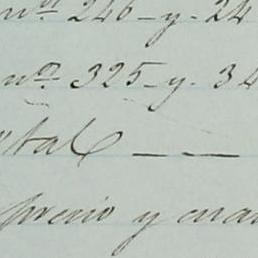 nº 246 - y - 24
nº 325 - y. 34
tal — —
precio y cua